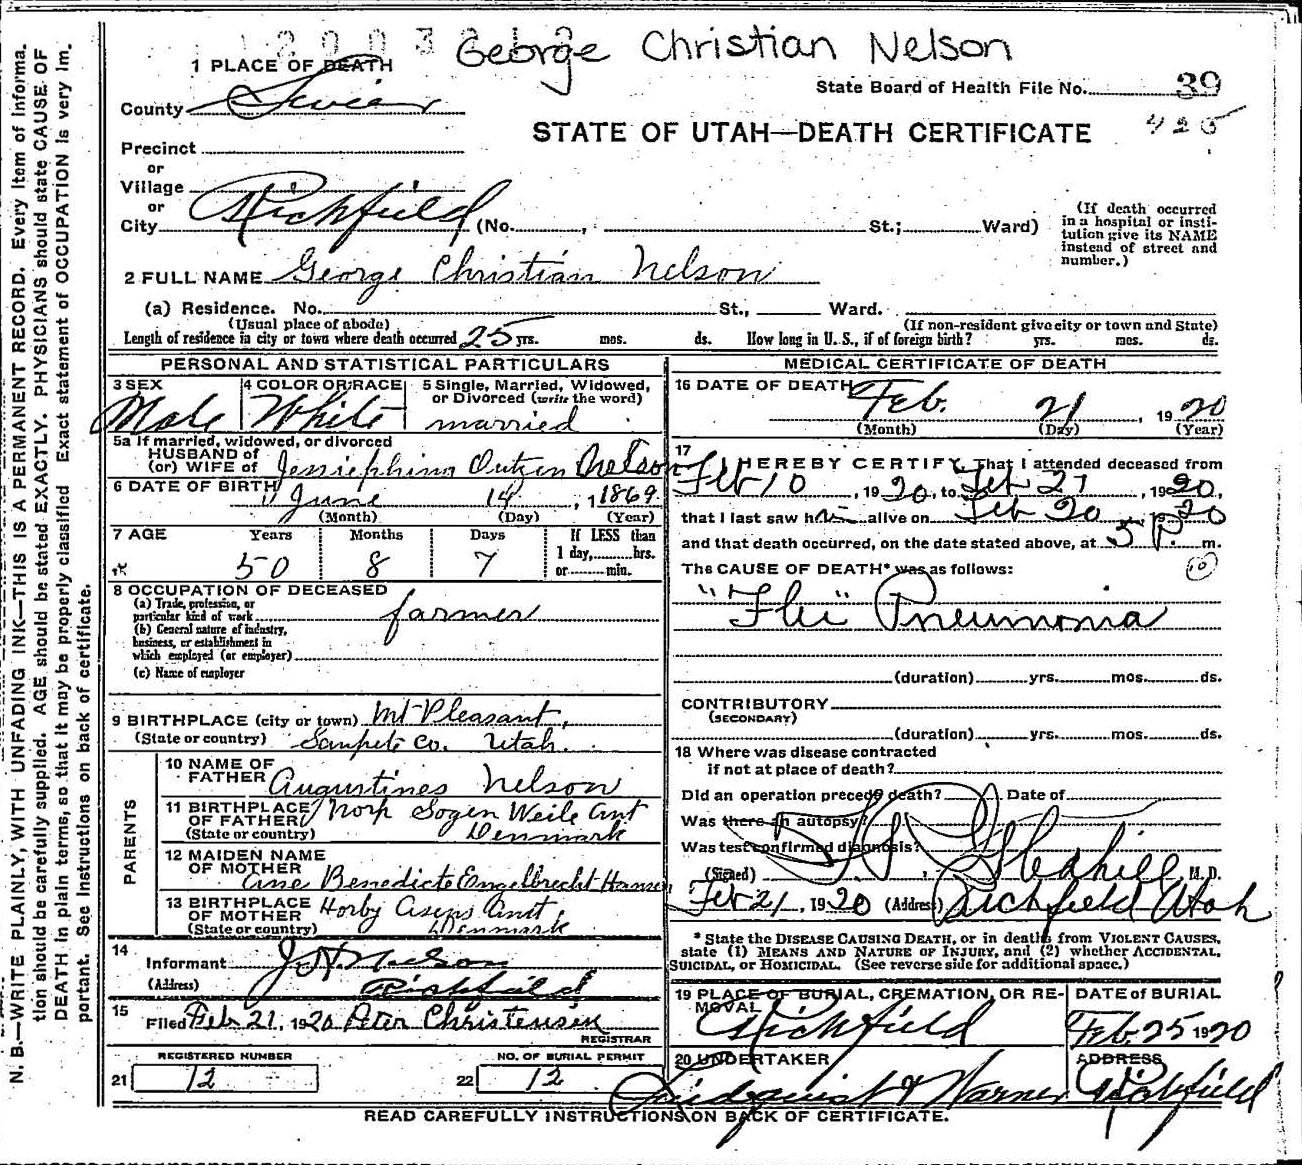 George Christian Nelson
1 PLACE OF DEATH
State Board of Health File No. 39
County Sevier
425
STATE OF UTAH—DEATH CERTIFICATE
Precinct
or
Village
or
City Richfield (No. , St.; Ward)
(If death occurred in a hospital or insti-
tution give its NAME
instead of street and
number.)
2 FULL NAME George Christian Nelson
(a) Residence. No. St., Ward.
(Usual place of abode) (If non-resident give city or town and State)
Length of residence in city or town where death occurred 25 yrs. mos. ds. How long in U. S., if of foreign birth? yrs. mos. ds.
PERSONAL AND STATISTICAL PARTICULARS
3 SEX
Male
4 COLOR OR RACE
White
5 Single, Married, Widowed,
or Divorced (write the word)
married
5a If married, widowed, or divorced
HUSBAND of
(or) WIFE of Nelson
6 DATE OF BIRTH June 14, 1869
(Month) (Day) (Year)
7 AGE Years Months Days If LESS than
1 day, hrs.
50 8 7 or min.
8 OCCUPATION OF DECEASED
(a) Trade, profession, or
particular kind of work farmer
(b) General nature of industry,
business, or establishment in
which employed (or employer)
(c) Name of employer
9 BIRTHPLACE (city or town) Mt Pleasant,
(State or country) Sanpete Co. Utah.
PARENTS
10 NAME OF
FATHER Augustines Nelson
11 BIRTHPLACE
OF FATHER Weile Amt
(State or country) Denmark
12 MAIDEN NAME
OF MOTHER
Ane Benedicte Engelbrecht Hansen
13 BIRTHPLACE
OF MOTHER Horby Amt,
(State or country) Denmark
14
Informant J H Nelson
(Address) Richfield
15
Filed Feb 21, 1920 Peter Christensen
REGISTRAR
REGISTERED NUMBER
21 12
NO. OF BURIAL PERMIT
22 12
MEDICAL CERTIFICATE OF DEATH
16 DATE OF DEATH
Feb. 21, 1920
(Month) (Day) (Year)
17
I HEREBY CERTIFY, That I attended deceased from
Feb 10, 1920, to Feb 21, 1920,
that I last saw him alive on Feb 20, 20
and that death occurred, on the date stated above, at 5 P. m.
The CAUSE OF DEATH* was as follows: 10
"Flu" Pneumonia
(duration) yrs. mos. ds.
CONTRIBUTORY
(SECONDARY)
(duration) yrs. mos. ds.
18 Where was disease contracted
if not at place of death?
Did an operation precede death? Date of
Was there an autopsy?
Was test confirmed diagnosis?
(Signed) M. D.
Feb 21, 1920 (Address) Richfield Utah
* State the DISEASE CAUSING DEATH, or in deaths from VIOLENT CAUSES,
state (1) MEANS AND NATURE OF INJURY, and (2) whether ACCIDENTAL,
SUICIDAL, or HOMICIDAL. (See reverse side for additional space.)
19 PLACE OF BURIAL, CREMATION, OR RE-
MOVAL
Richfield
DATE of BURIAL
Feb. 25 1920
20 UNDERTAKER
Lindquist & Warner
ADDRESS
Richfield
READ CAREFULLY INSTRUCTIONS ON BACK OF CERTIFICATE.
N. B.—WRITE PLAINLY, WITH UNFADING INK—THIS IS A PERMANENT RECORD. Every item of informa-
tion should be carefully supplied. AGE should be stated EXACTLY. PHYSICIANS should state CAUSE OF
DEATH in plain terms, so that it may be properly classified. Exact statement of OCCUPATION is very im-
portant. See instructions on back of certificate.